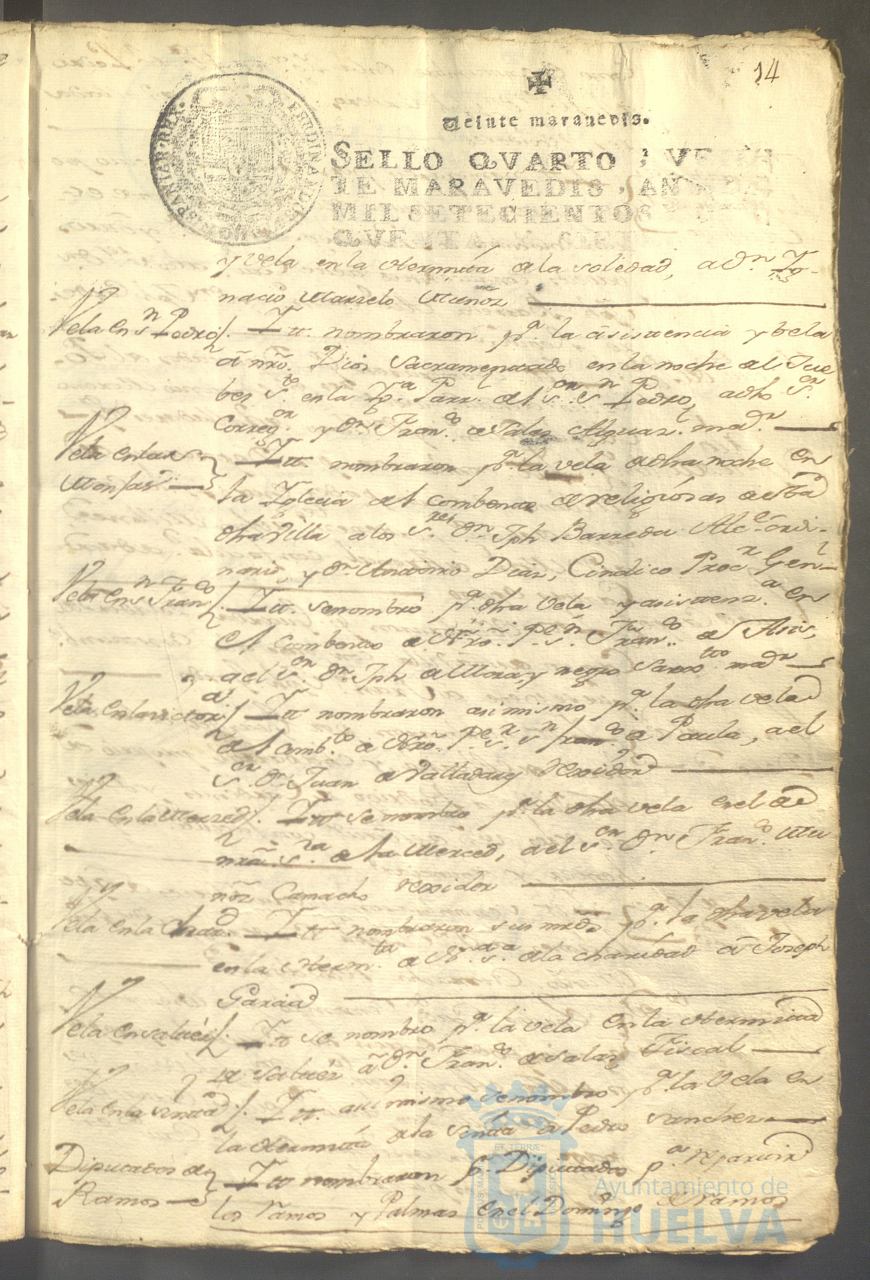 14
Veinte maravedis.
SELLO QVARTO, VEIN
TE MARAVEDIS, AN
MIL SETECIENTOS
QVENTA Y SIET
FERDINANDUS HISPANIAR. REX.
y Vela en la Hermita de la Soledad, a Dn. Yg-
nacio Marzelo Muñoz
Vela en Sn Pedro
Itt. nombraron pa. la asistencia y bela
a nro. Dios Sacramentado en la noche del Jue
bes Sto. en la Yga. Parr. del Sor. Sn Pedro, a dho Sor.
Corregor. y Dn. Franco. de Salas Alguazl. mayr
Vela en las
Monjas
Itt. nombraron pa. la vela de dha noche en
la Iglecia del combento de religiosas de esta
dha Villa a los Sres. Dn. Jph Barreda Alce. ordi-
nario, y Dn. Antonio Diaz, Cindico Procr Genl
Vela en Sn Franco
Itt. se nombró pa. dha vela y asistenza. en
el combento de Ntro. Pe. Sn. Franco. de Asis,
a el Sor. Dn. Jph de Mora y negro
Vela en la victoria
Itt nombraron asimismo pa. la dha vela
del combto. de Ntro. Pe. Sr. Sn Franco. de Paula, a el
Sor. Dn. Juan de Valladares Rexidor
Vela en la Merzed
Itt se nombro pa. la dha vela en el de
nra. Sra. de la Merced, a el Sor. Dn. Franco. Mu
ñoz Camacho Rexidor
Vela en la Charidad
Itt nombraron sus mrds. pa. la dha vela
en la Hermta. de Na. Sa. de la charidad a Joseph
Garcia
Vela en saluds
Itt se nombro pa. la vela en la Hermita
de a Dn. Franco. de Salas Fiscal
Vela en la
Itt. asi mismo se nombro pa. la Vela en
la Hermita de la a Pedro Sanchez
Diputados de
Ramos
Itt nombraron pr. Diputados pa. repartir
los Ramos y Palmas en el Domingo de Ramos
Ayuntamiento de
HUELVA